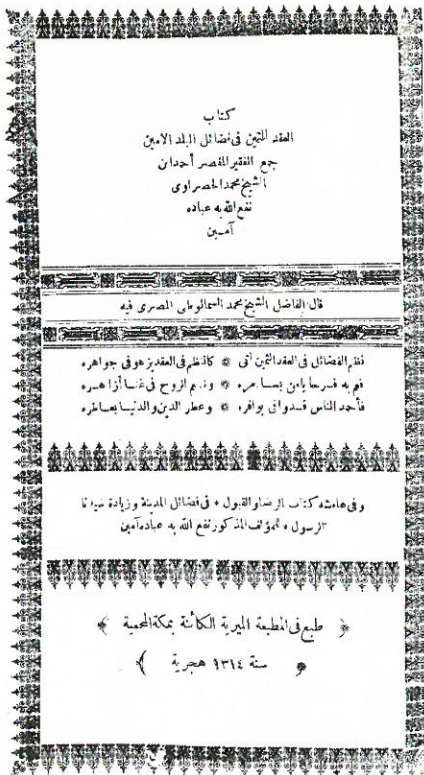 كتاب
العقد الثمين فى فضائل البلد الامين
جمع الفقير المقصر أحمد ابن
الشيخ محمد الحضراوى
نفع الله به عباده
آمين
قال الفاضل الشيخ محمد السمالوطى المصرى فيه
نظم الفضائل فى العقد الثمين أتى * كالنظم فى العقد يزهو فى جواهره
فم به فرحا يامن يسامره * ونعم الروح فى غنا أزاهره
فأحمد الناس قد وافى بوافره * وعطر الدين والدنيا بعاطره
وفى هامشه كتاب الرضا والقبول * فى فضائل المدينة وزيادة سيدنا
الرسول * للمؤلف المذكور نفع الله به عباده آمين
طبع فى المطبعة الميرية الكائنة بمكة المحمية
سنة ١٣١٤ هجرية